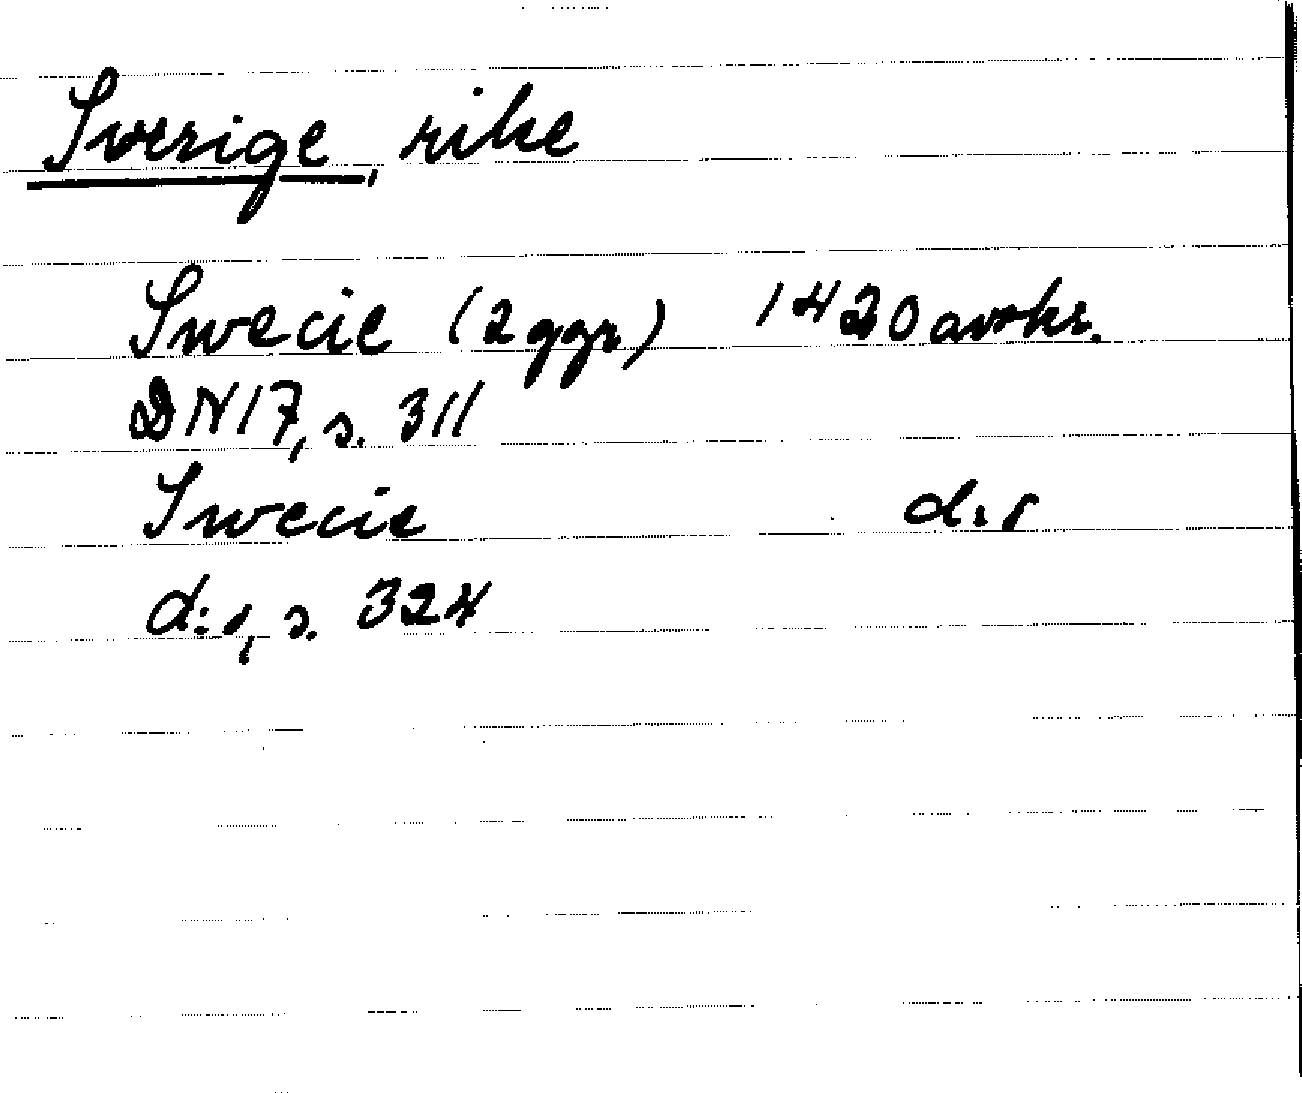 Sverige, rike
Swecie (2 ggr) 1420 avskr.
DN 17, s. 311
Swecie d:o
d:o, s. 324